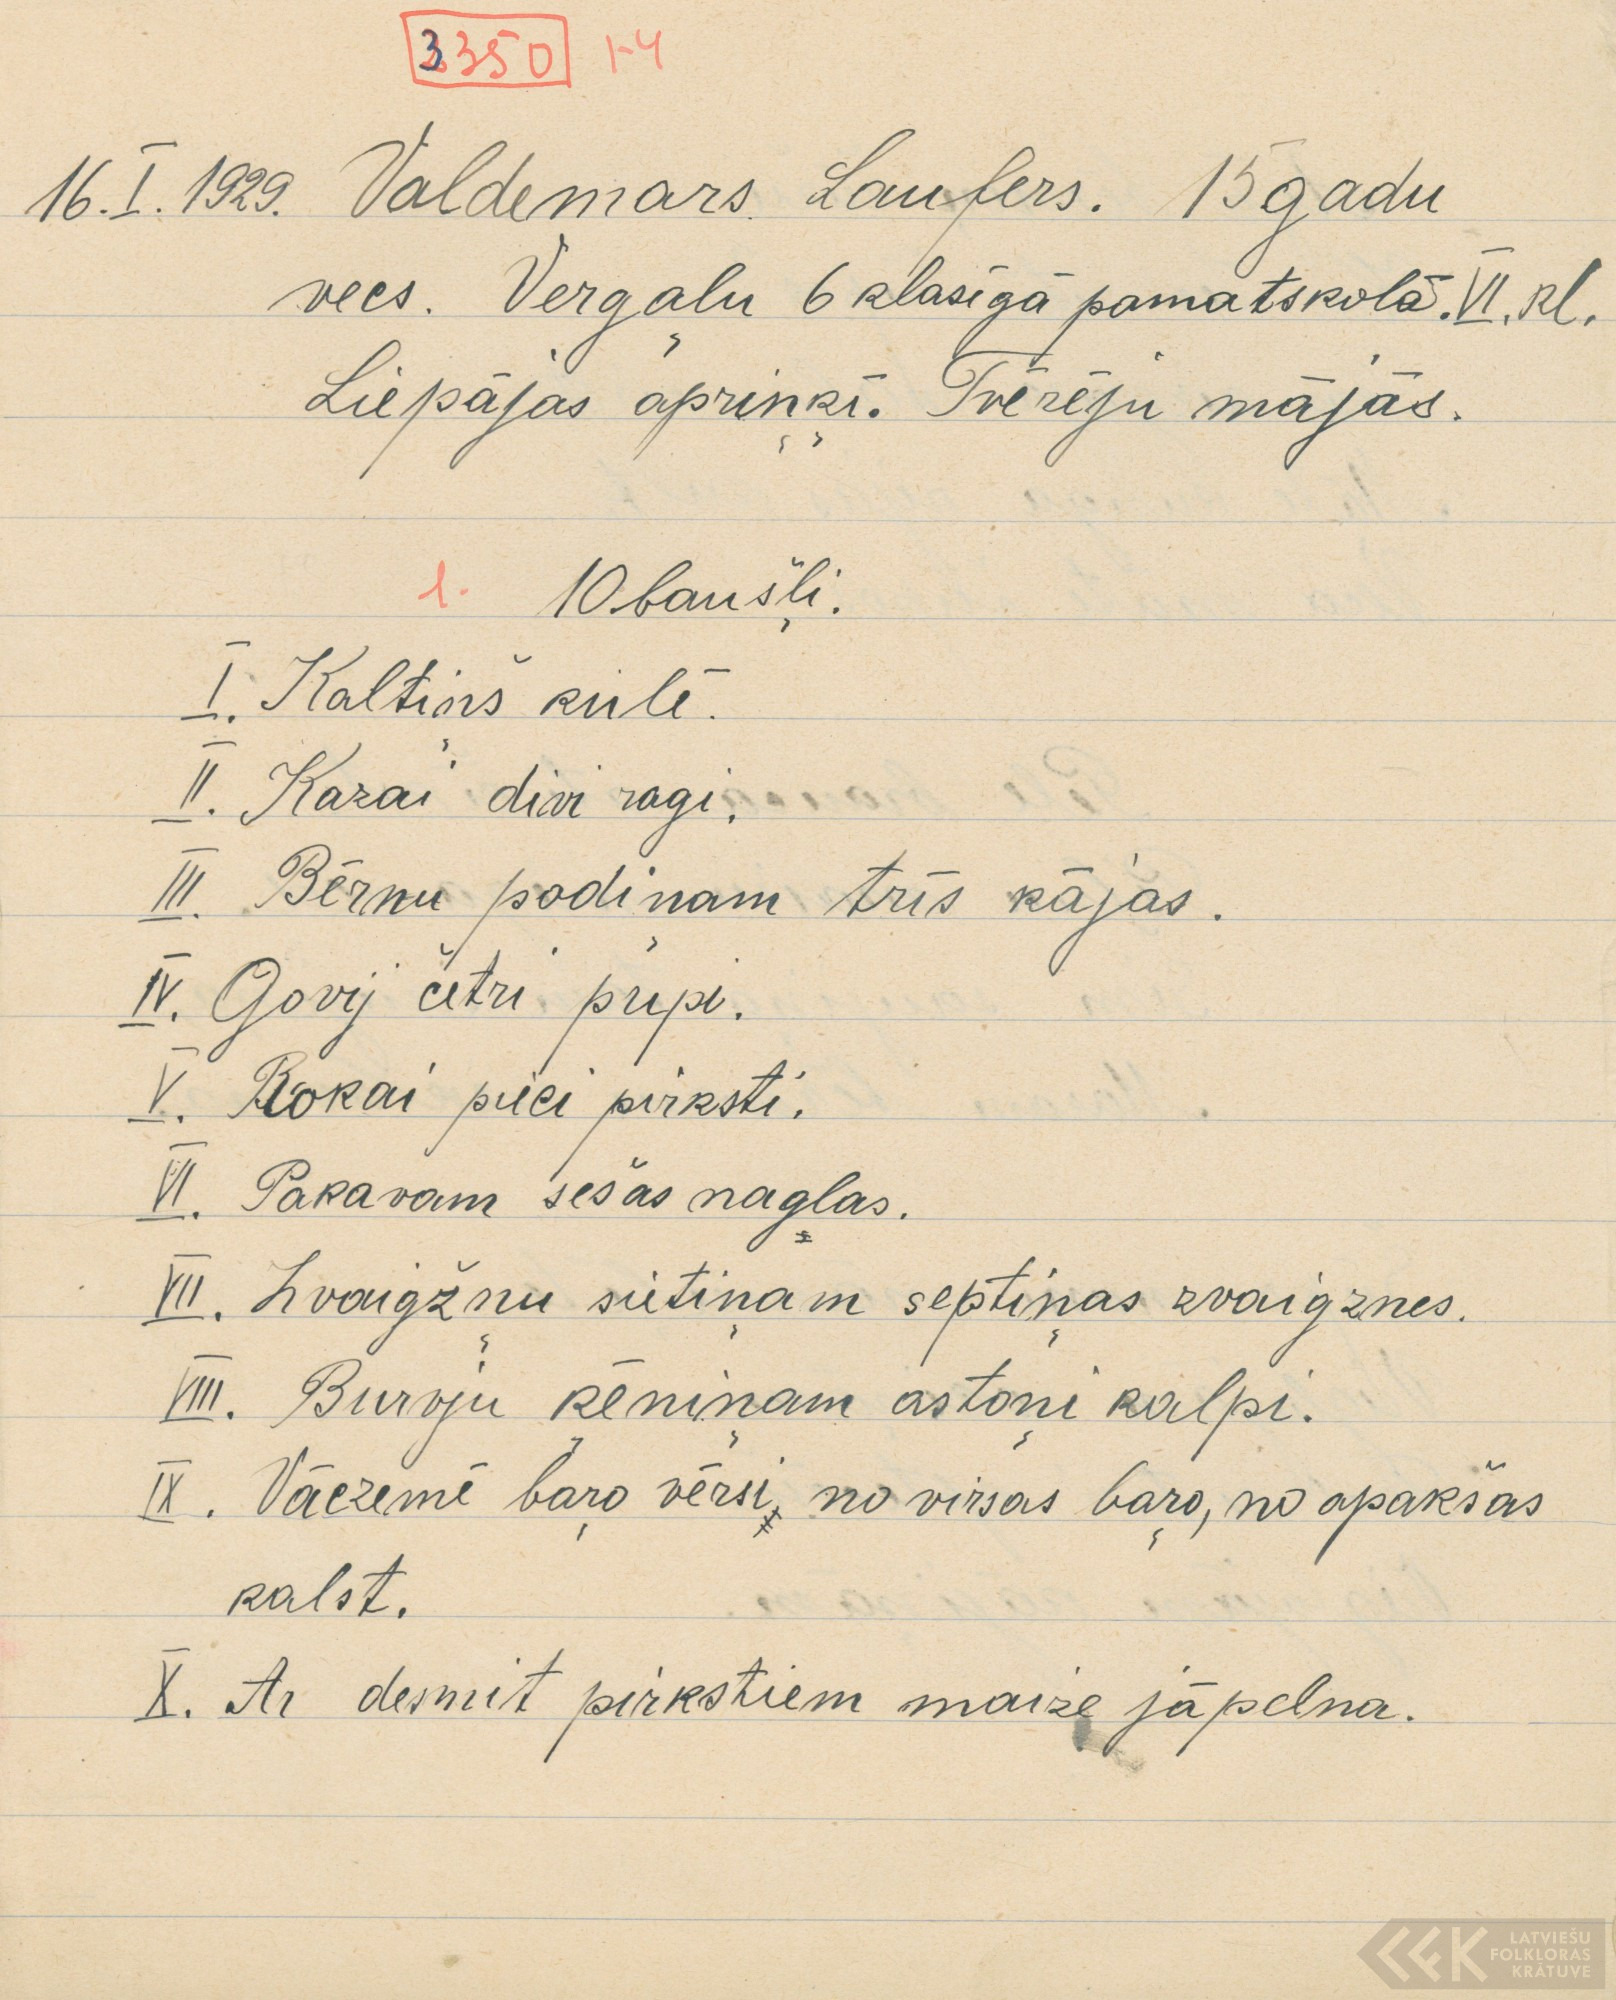 3350 1-4
16. I. 1929. Valdemars Laufers. 15 gadu
vecs. Vergaļu 6 klasīgā pamatskolā. VI. kl.
Liepājas apriņķī. Tvērēju mājās.
1. 10 baušļi.
I. Kaltiņš kulē.
II. Kazai divi ragi.
III. Bērnu podiņam trīs kājas.
IV. Govij četri pupi.
V. Rokai pieci pirksti.
VI. Pakavam sešas naglas.
VII. Zvaigžņu sietiņam septiņas zvaigznes.
VIII. Burvju ķēniņam astoņi kalpi.
IX. Vāczemē baŗo vērsi, no virsas baŗo, no apakšas
kalst.
X. Ar desmit pirkstiem maize jāpelna.
LATVIEŠU
FOLKLORAS
KRĀTUVE